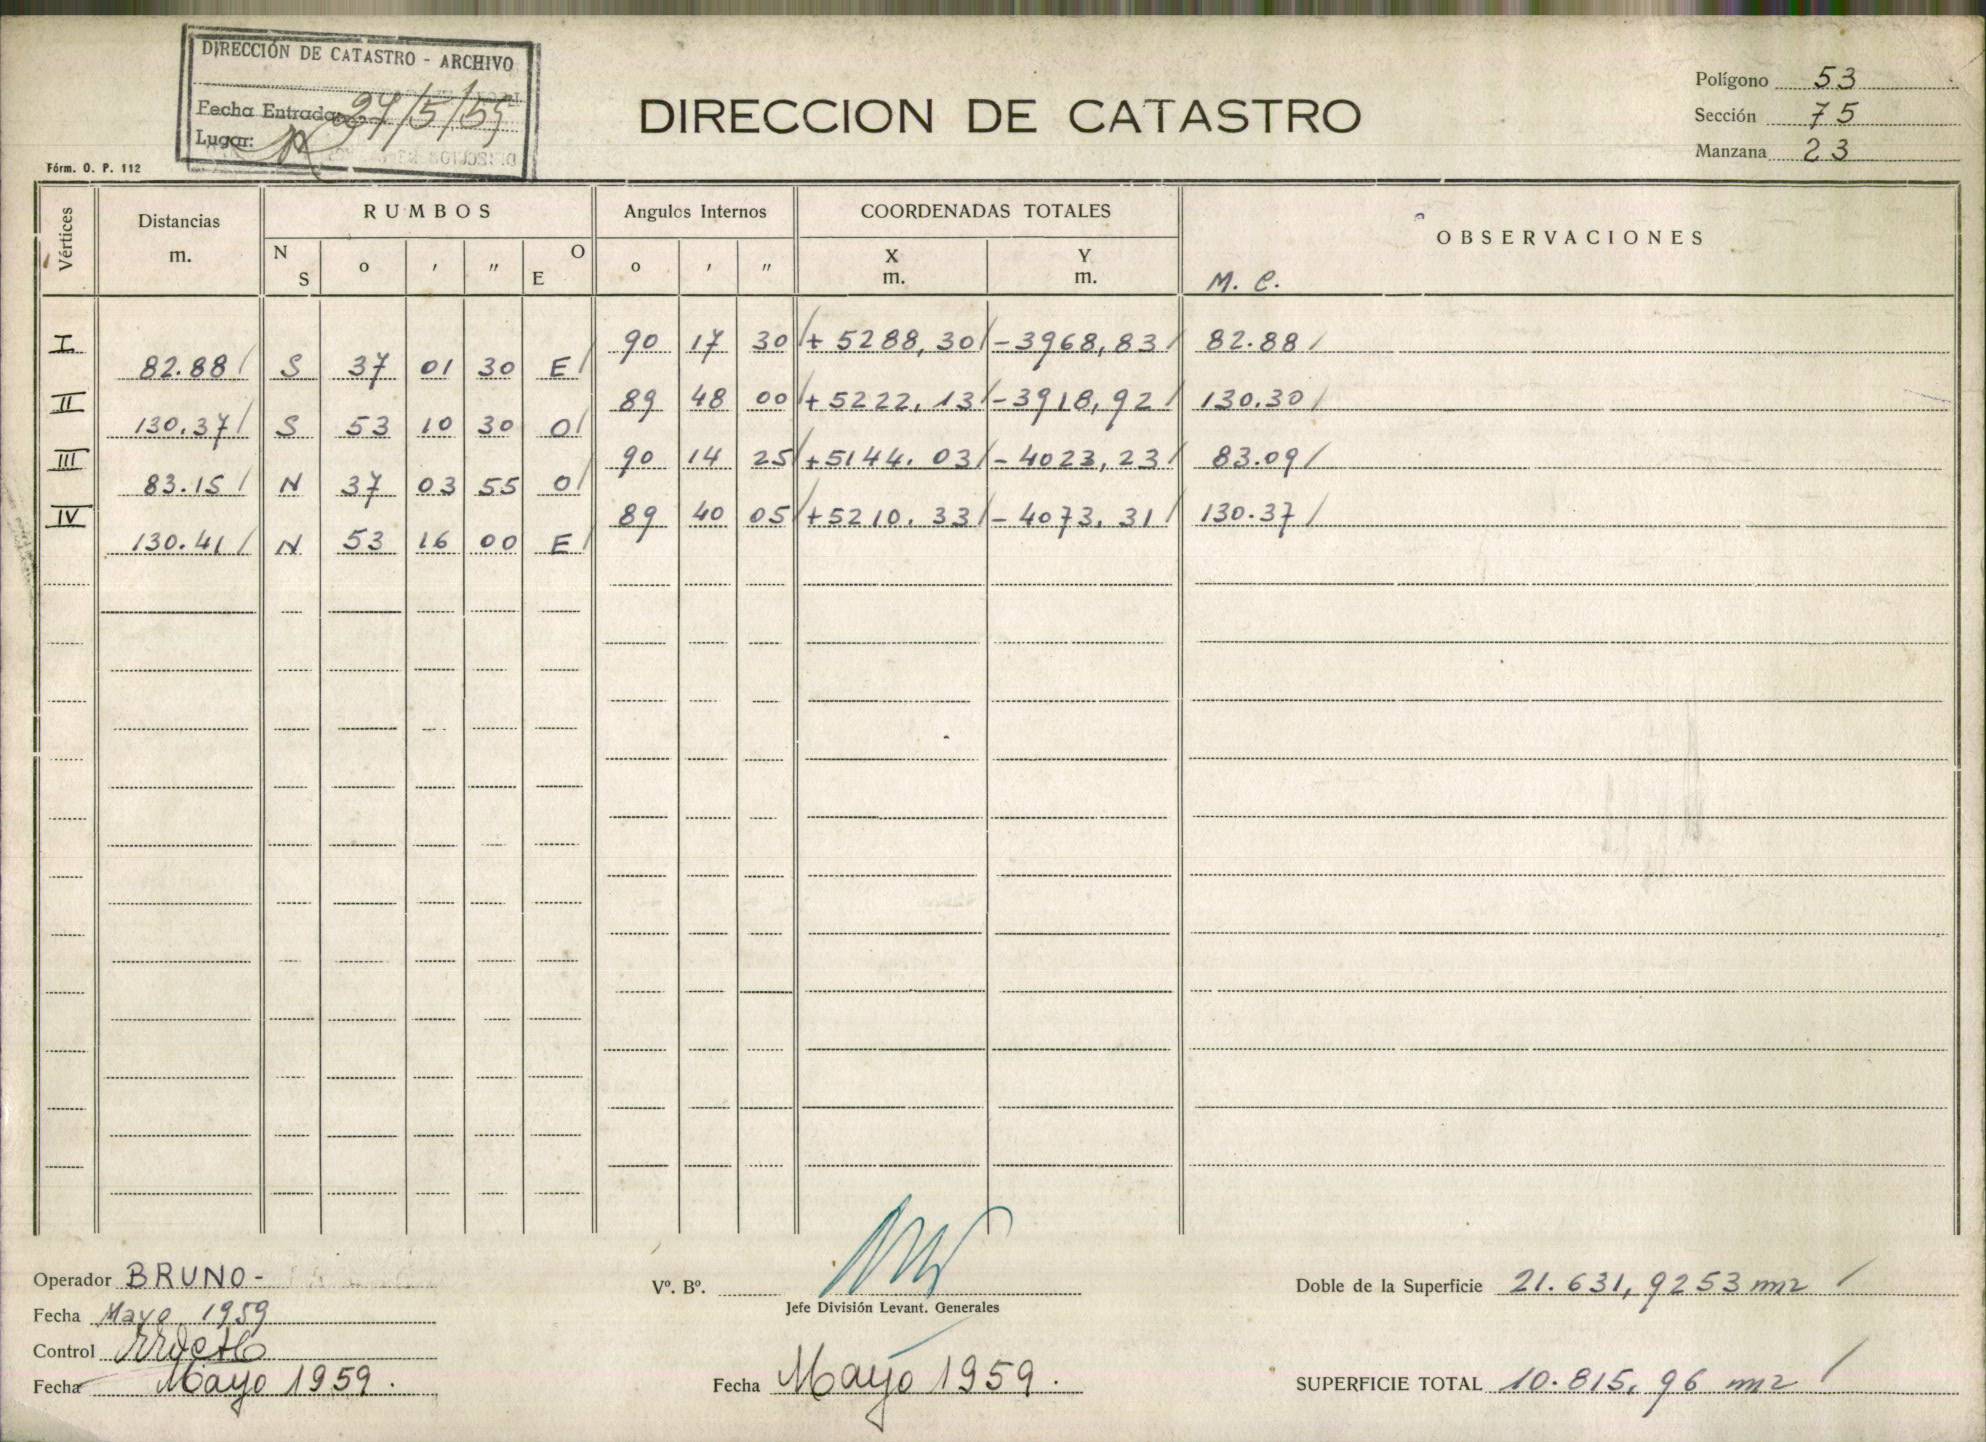 DIRECCIÓN DE CATASTRO - ARCHIVO
Fecha Entrada: 27/5/59
Lugar:
Fórm. O. P. 112
DIRECCION DE CATASTRO
Polígono 53
Sección 75
Manzana 23
Vértices Distancias m. RUMBOS Angulos Internos COORDENADAS TOTALES OBSERVACIONES
N S o ' " O E o ' " X m. Y m. M. C.
I 90 17 30 + 5288,30 - 3968,83 82.88
82.88 S 37 01 30 E
II 89 48 00 + 5222,13 - 3918,92 130.30
130.37 S 53 10 30 O
III 90 14 25 + 5144.03 - 4023,23 83.09
83.15 N 37 03 55 O
IV 89 40 05 + 5210.33 - 4073,31 130.37
130.41 N 53 16 00 E
Operador BRUNO-
Fecha Mayo 1959
Control
Fecha Mayo 1959.
Vº. Bº.
Jefe División Levant. Generales
Fecha Mayo 1959.
Doble de la Superficie 21.631,9253 m2
SUPERFICIE TOTAL 10.815,96 m2